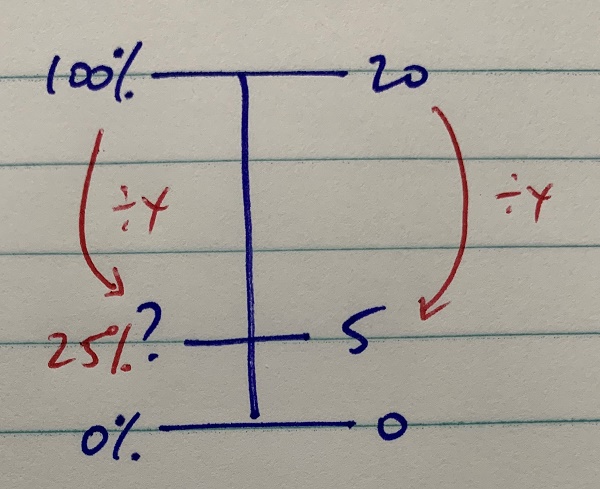 100% 20
÷4 ÷4
25%? 5
0% 0